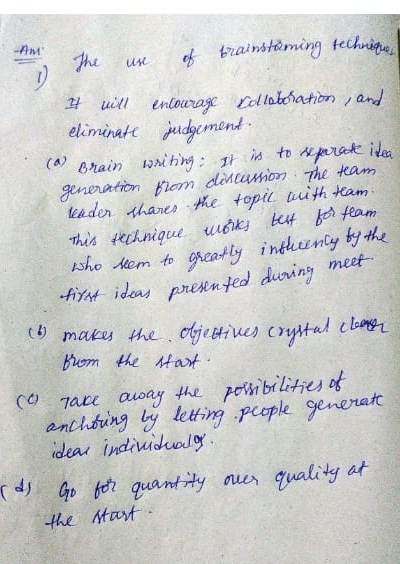 Ans
1) The use of brainstorming techniques
It will encourage collaboration, and
eliminate judgement.
(a) Brain writing: It is to separate idea
generation from discussion. The team
leader shares the topic with team.
This technique works best for team
who seem to greatly influency by the
first ideas presented during meet
(b) makes the objectives crystal clear
from the start.
(c) Take away the possibilities of
anchoring by letting people generate
ideas individually.
(d) Go for quantity over quality at
the start.